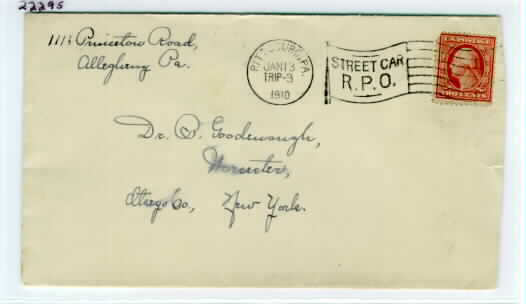 22295
1113 Princeton Road,
Allegheny Pa.
PITTSBURG, PA.
JAN 13
TRIP-3
1910
STREET CAR
R.P.O.
U.S. POSTAGE
TWO CENTS
Dr. B. Goodenough,
Worcester,
Otsego Co., New York.